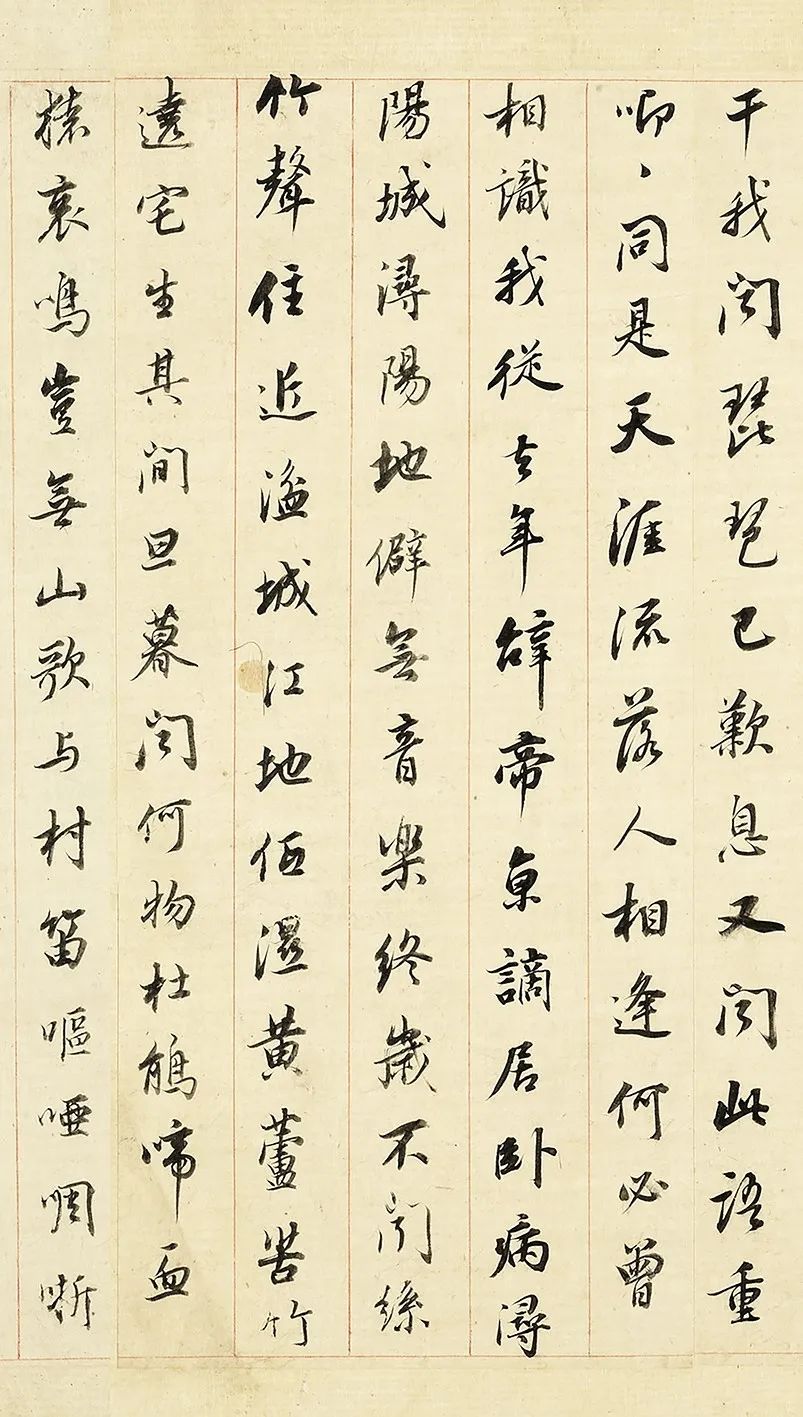 干我闻琵琶已歎息又闻此語重
唧〻同是天涯流落人相逢何必曾
相識我從去年辭帝京謫居卧病潯
陽城潯陽地僻無音樂終歲不闻絲
竹聲住近湓城江地低濕黄蘆苦竹
遶宅生其間旦暮闻何物杜鵑啼血
猿哀鳴豈無山歌与村笛嘔啞啁哳